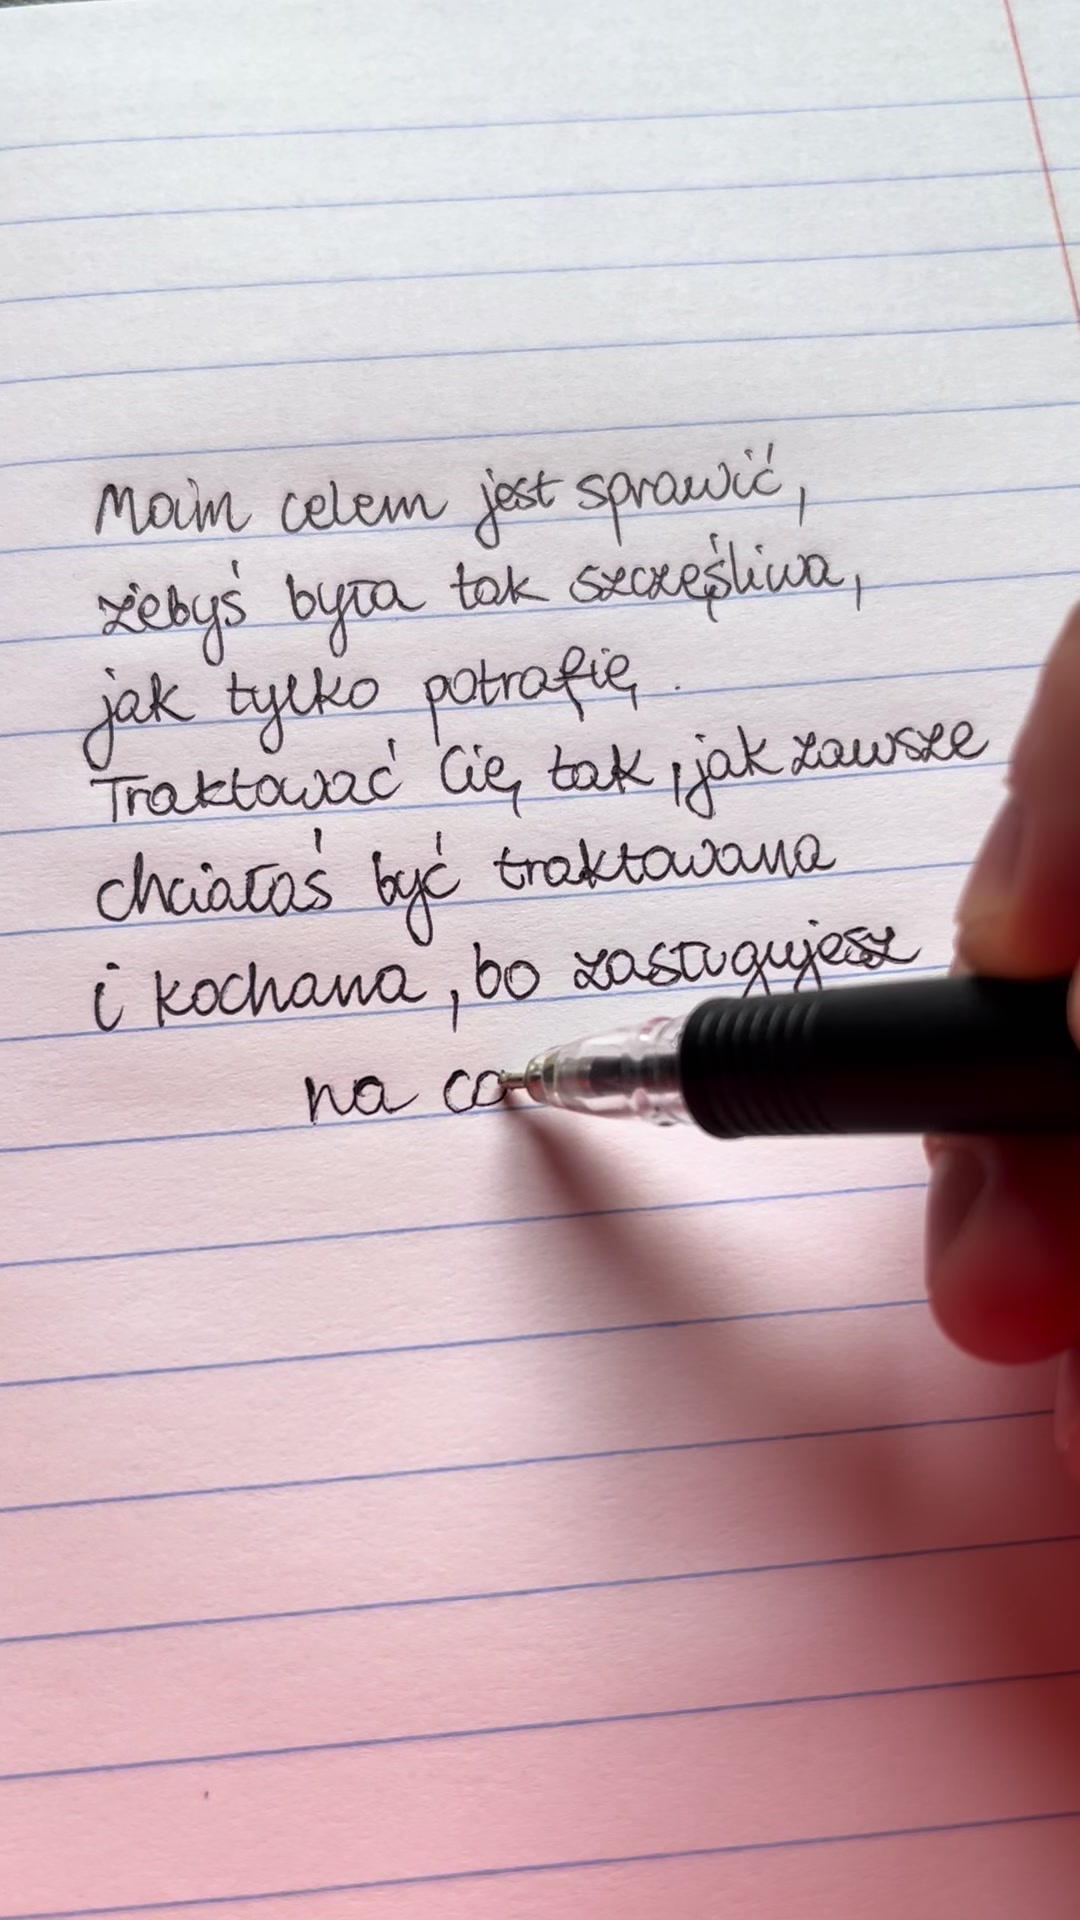 Moim celem jest sprawić,
żebyś była tak szczęśliwa,
jak tylko potrafię.
Traktować Cię tak, jak zawsze
chciałaś być traktowana
i kochana, bo zasługujesz
na co